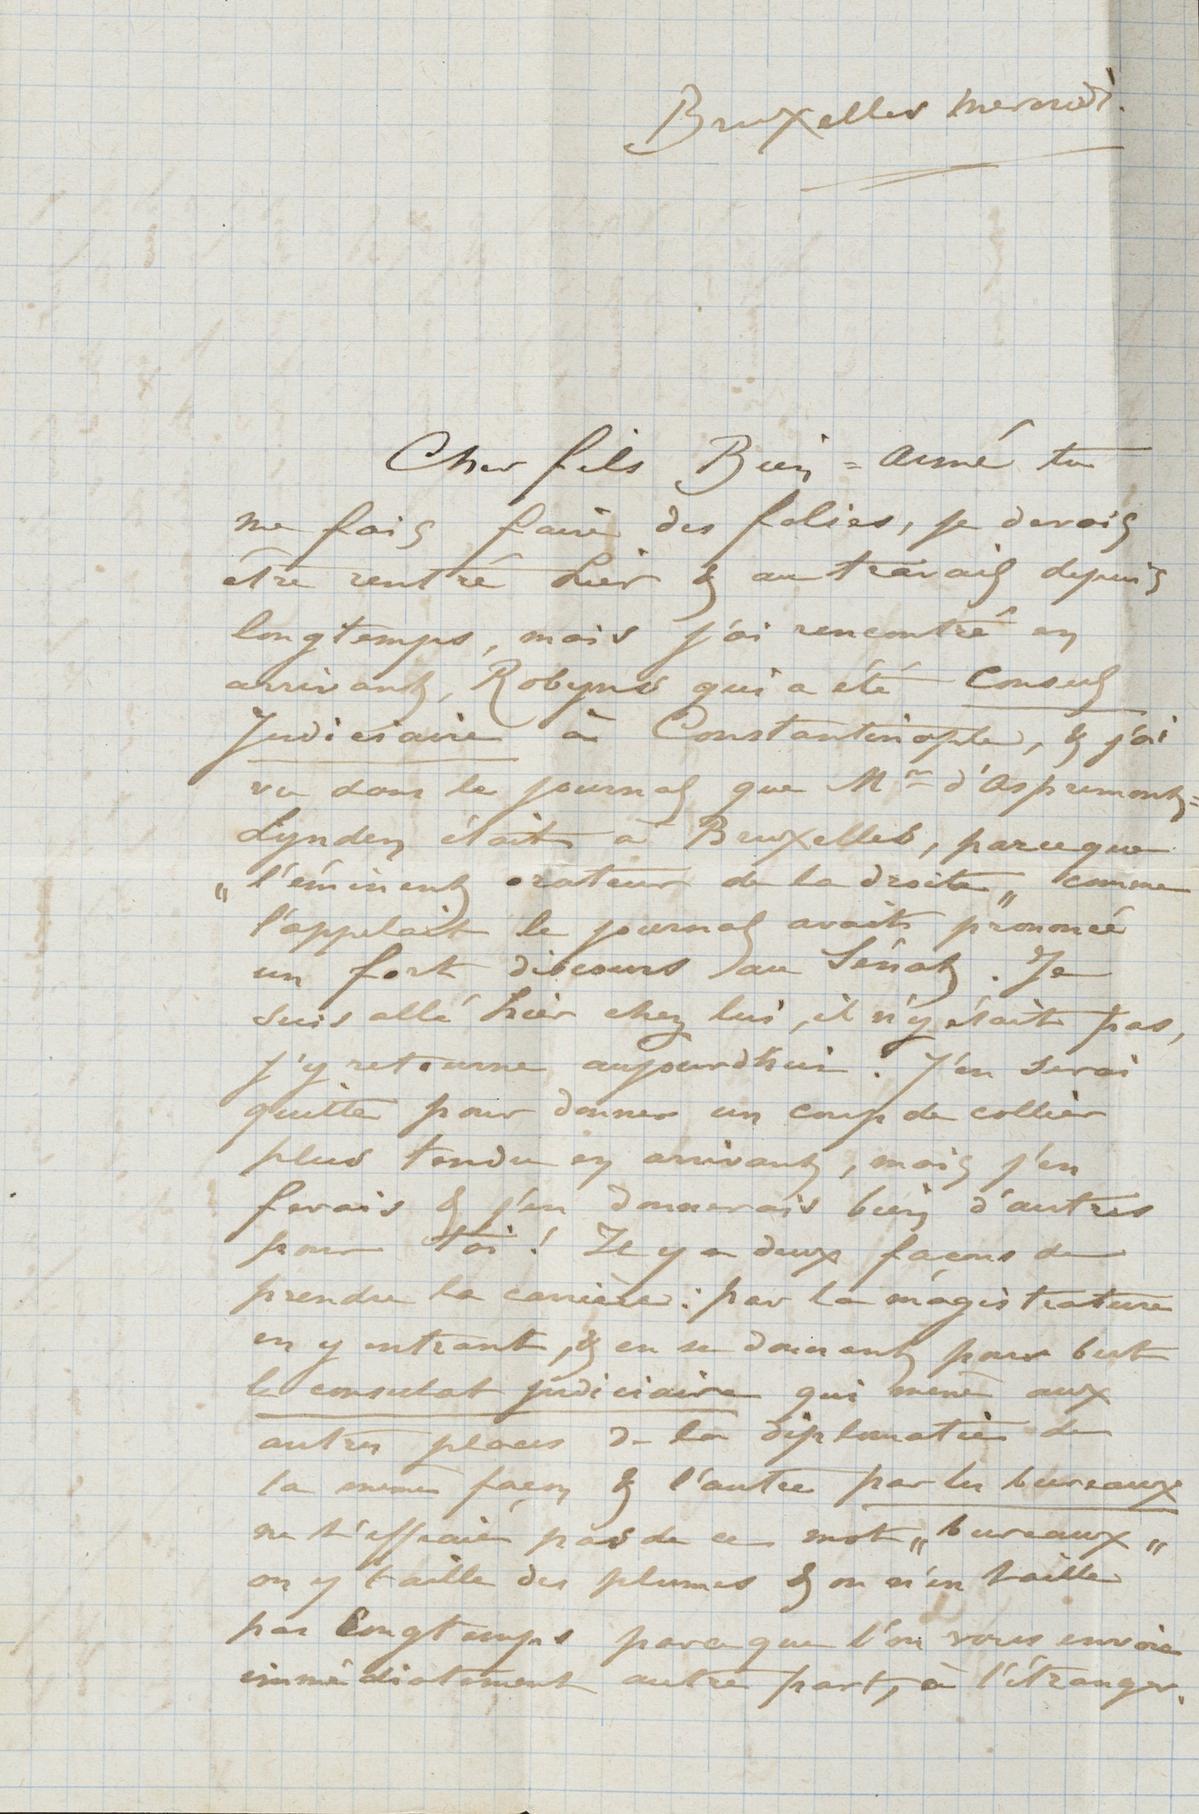 Bruxelles mercredi.
Cher fils Bien-Aimé tu
me fais faire des folies, je devais
être rentré hier & au travail depuis
longtemps, mais j'ai rencontré en
arrivant, Robyns qui a été Consul
Judiciaire à Constantinople, & j'ai
vu dans le journal que Mr d'Aspremont=
Lynden était à Bruxelles, parceque
"l'éminent orateur de la droite" comme
l'appelait le journal avait prononcé
un fort discours au Sénat. Je
suis allé hier chez lui, il n'y était pas,
j'y retourne aujourdhui. J'en serai
quitte pour donner un coup de collier
plus tendu en arrivant, mais j'en
ferais & j'en donnerais bien d'autres
pour toi! Il y a deux façons de
prendre la carrière: par la magistrature
en y entrant, & en se donnant pour but
le consulat judiciaire qui mène aux
autres places de la diplomatie de
la même façon & l'autre par les bureaux
ne t'effraie pas de ce mot "bureaux"
on y taille des plumes & on n'en taille
pas longtemps parce que l'on vous envoie
immédiatement autre part, à l'étranger.